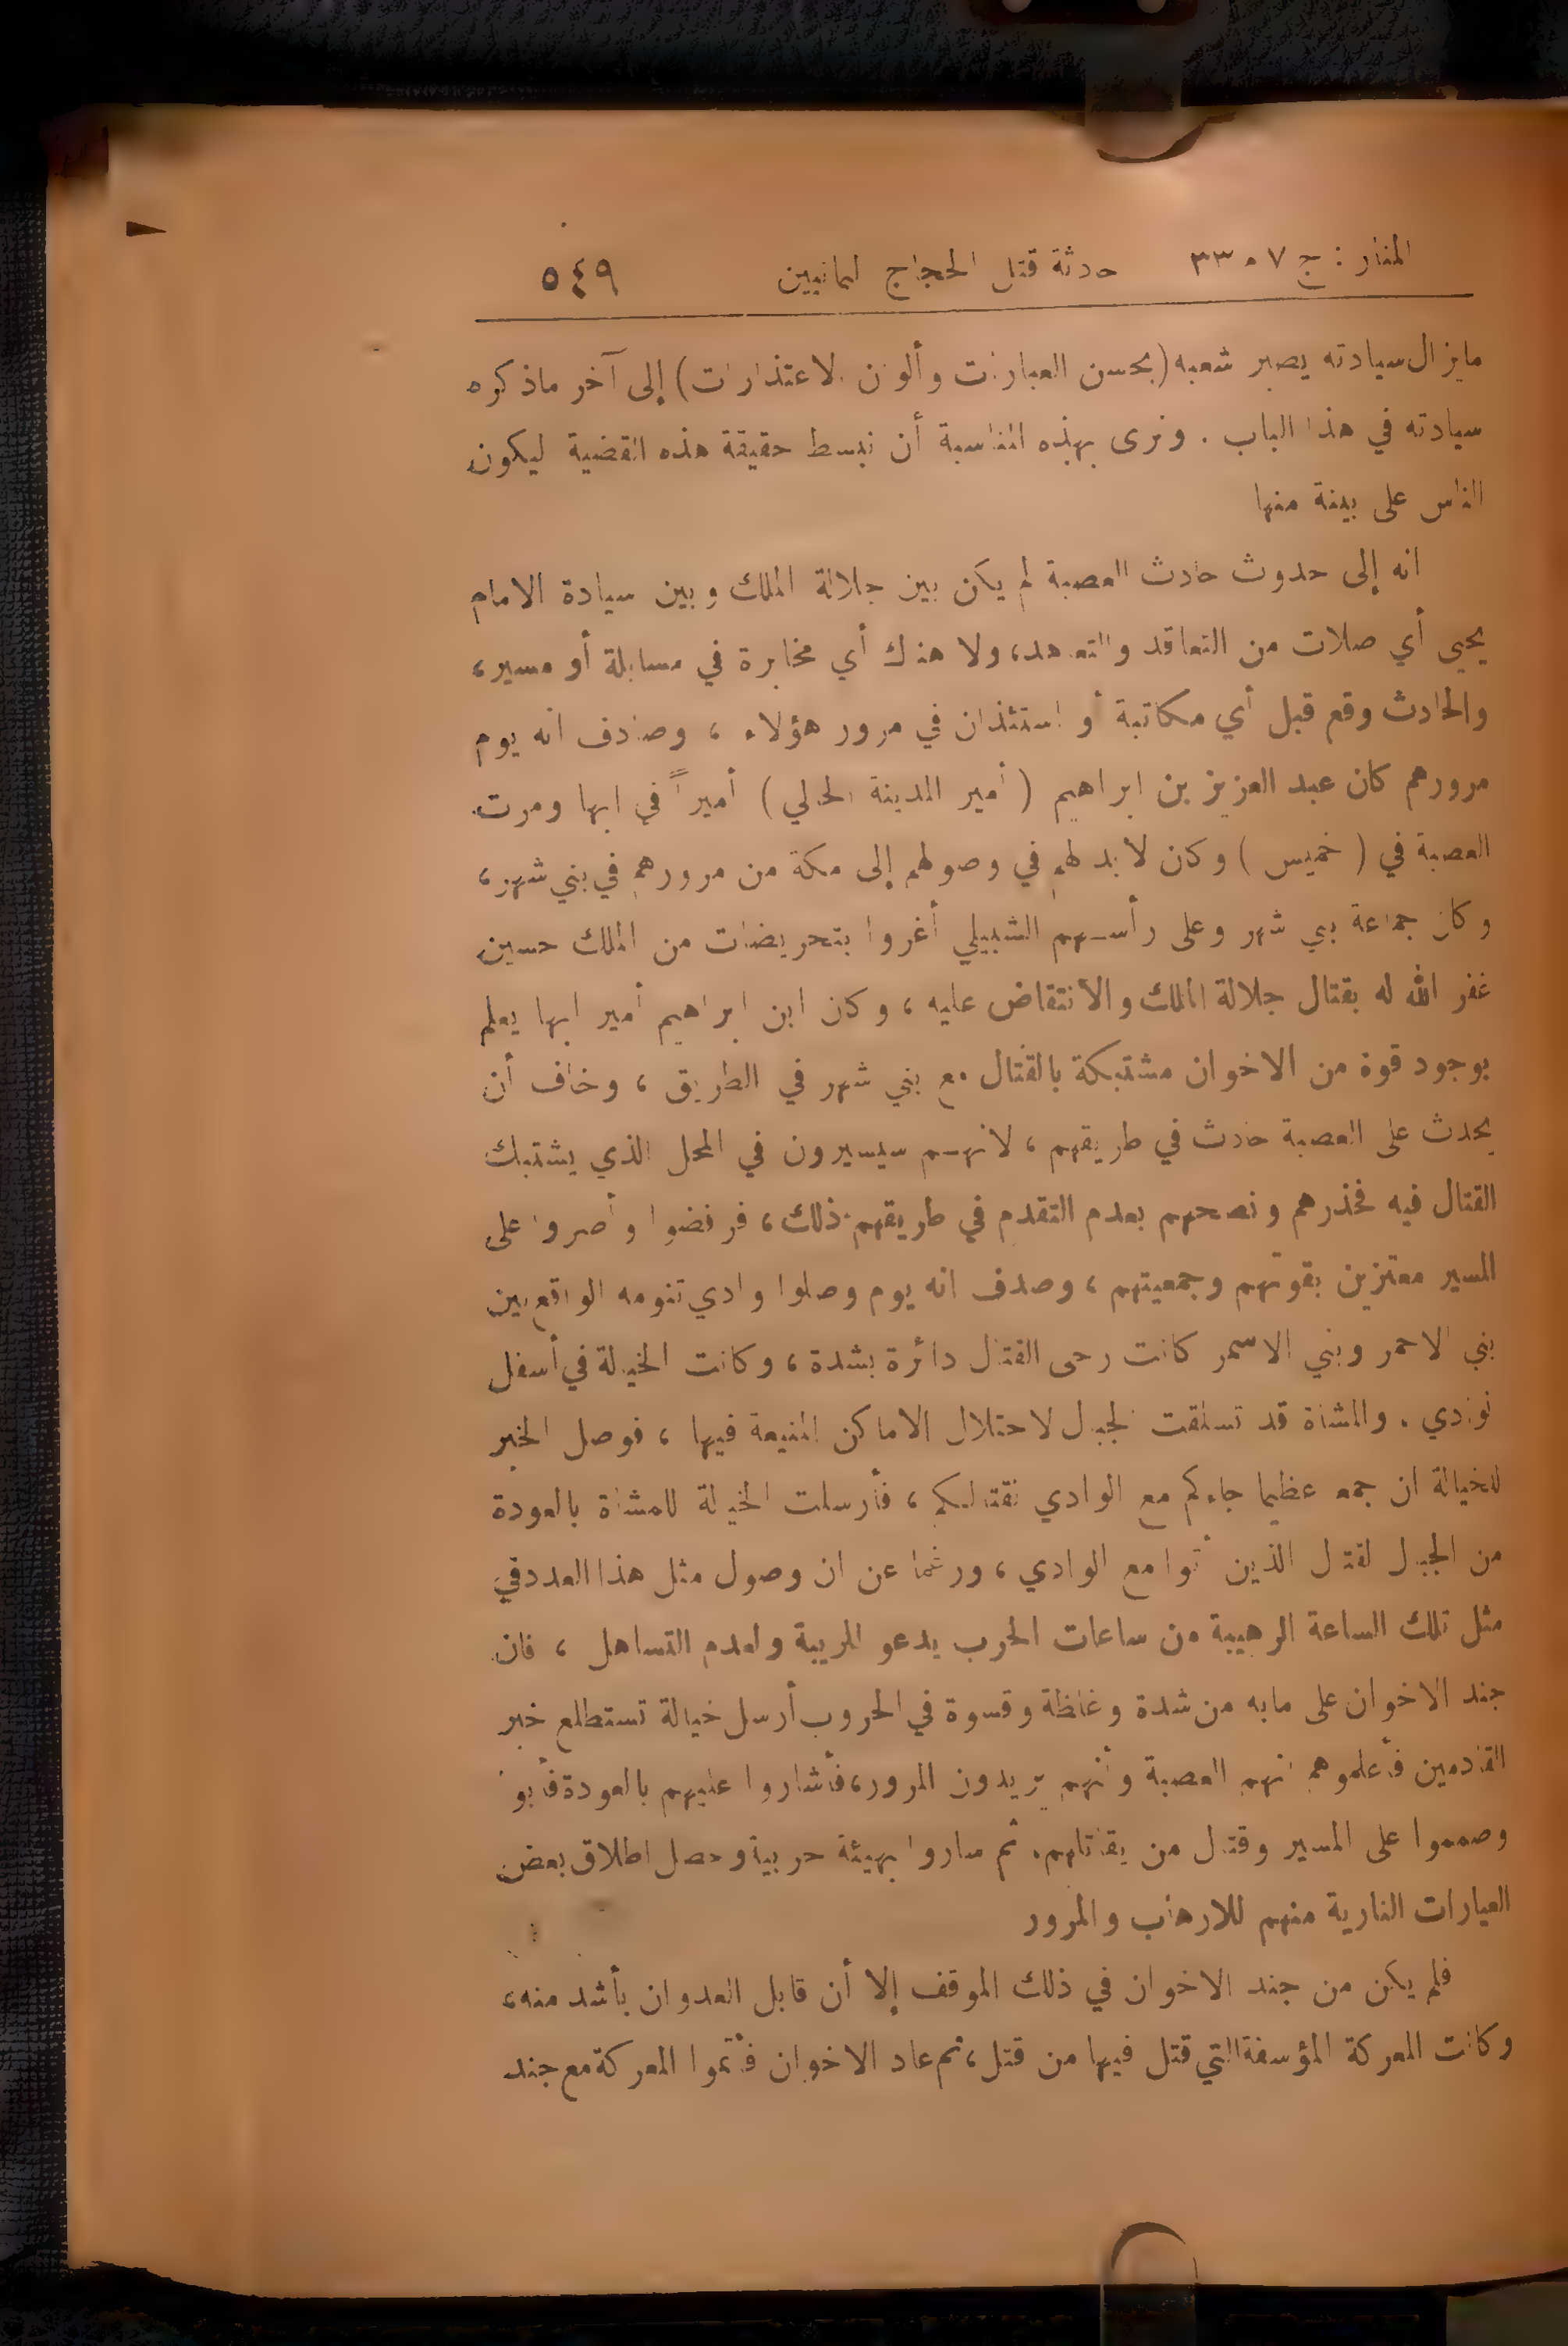 المنار : ج ٧ م ٣٣ حادثة قتل الحجاج اليمانيين ٥٤٩
مايزال سيادته يصبر شعبه (بحسن العبارات وألوان الاعتذارات) إلى آخر ماذكره
سيادته في هذا الباب . ونرى بهذه المناسبة أن نبسط حقيقة هذه القضية ليكون
الناس على بينة منها
انه إلى حدوث حادث العصبة لم يكن بين جلالة الملك وبين سيادة الامام
يحيى أي صلات من التعاقد والتعاهد، ولا هناك أي مخابرة في مسابلة أو مسير،
والحادث وقع قبل أي مكاتبة أو استئذان في مرور هؤلاء ، وصادف انه يوم
مرورهم كان عبد العزيز بن ابراهيم ( أمير المدينة الحالي ) أميراً في ابها ومرت
العصبة في ( خميس ) وكان لا بد لهم في وصولهم إلى مكة من مرورهم في بني شهر،
وكان جماعة بني شهر وعلى رأسهم الشبيلي أغروا بتحريضات من الملك حسين
غفر الله له بقتال جلالة الملك والانتقاض عليه ، وكان ابن ابراهيم أمير ابها يعلم
بوجود قوة من الاخوان مشتبكة بالقتال مع بني شهر في الطريق ، وخاف أن
يحدث على العصبة حادث في طريقهم ، لانهم سيسيرون في المحل الذي يشتبك
القتال فيه فحذرهم ونصحهم بعدم التقدم في طريقهم ذلك، فرفضوا وأصروا على
المسير معتزين بقوتهم وجمعيتهم ، وصدف انه يوم وصلوا وادي تنومه الواقع بين
بني الاحمر وبني الاسمر كانت رحى القتال دائرة بشدة ، وكانت الخيالة في أسفل
الوادي . والمشاة قد تسلقت الجبال لاحتلال الاماكن المنيعة فيها ، فوصل الخبر
للخيالة ان جمعا عظيما جاءكم مع الوادي لقتالكم ، فأرسلت الخيالة للمشاة بالعودة
من الجبال لقتال الذين أتوا مع الوادي ، ورغما عن ان وصول مثل هذا العدد في
مثل تلك الساعة الرهيبة من ساعات الحرب يدعو للريبة ولعدم التساهل ، فان
جند الاخوان على مابه من شدة وغلظة وقسوة في الحروب أرسل خيالة تستطلع خبر
القادمين فأعلموهم انهم العصبة وأنهم يريدون المرور، فأشاروا عليهم بالعودة فأبوا
وصمموا على المسير وقتال من يقاتلهم. ثم ساروا بهيئة حربية وحصل اطلاق بعض
العيارات النارية منهم للارهاب والمرور
فلم يكن من جند الاخوان في ذلك الموقف إلا أن قابل العدوان بأشد منه،
وكانت المعركة المؤسفة التي قتل فيها من قتل، ثم عاد الاخوان فأتموا المعركة مع جند